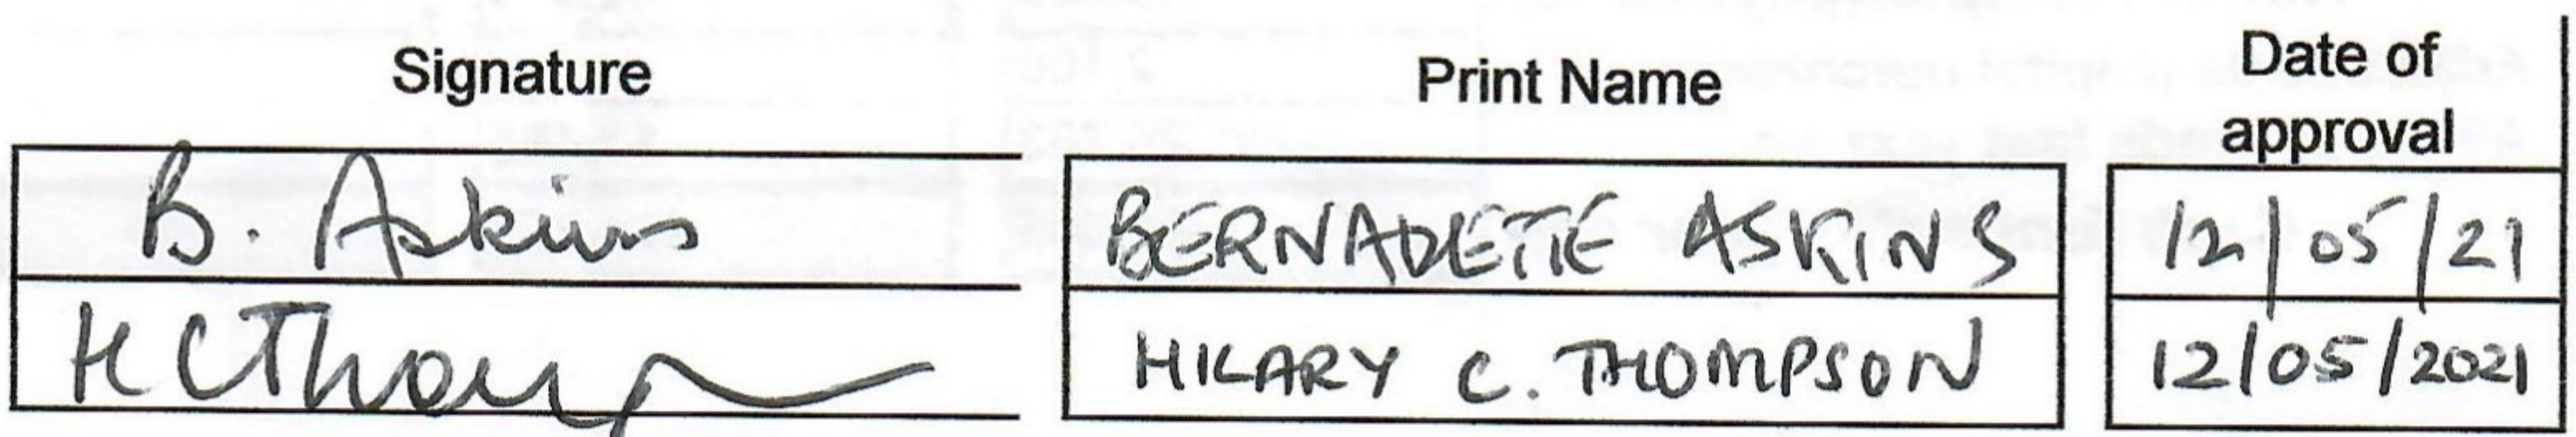 Signature Print Name Date of approval
B. Askins BERNADETTE ASKINS 12/05/21
HCThomp HILARY C. THOMPSON 12/05/2021